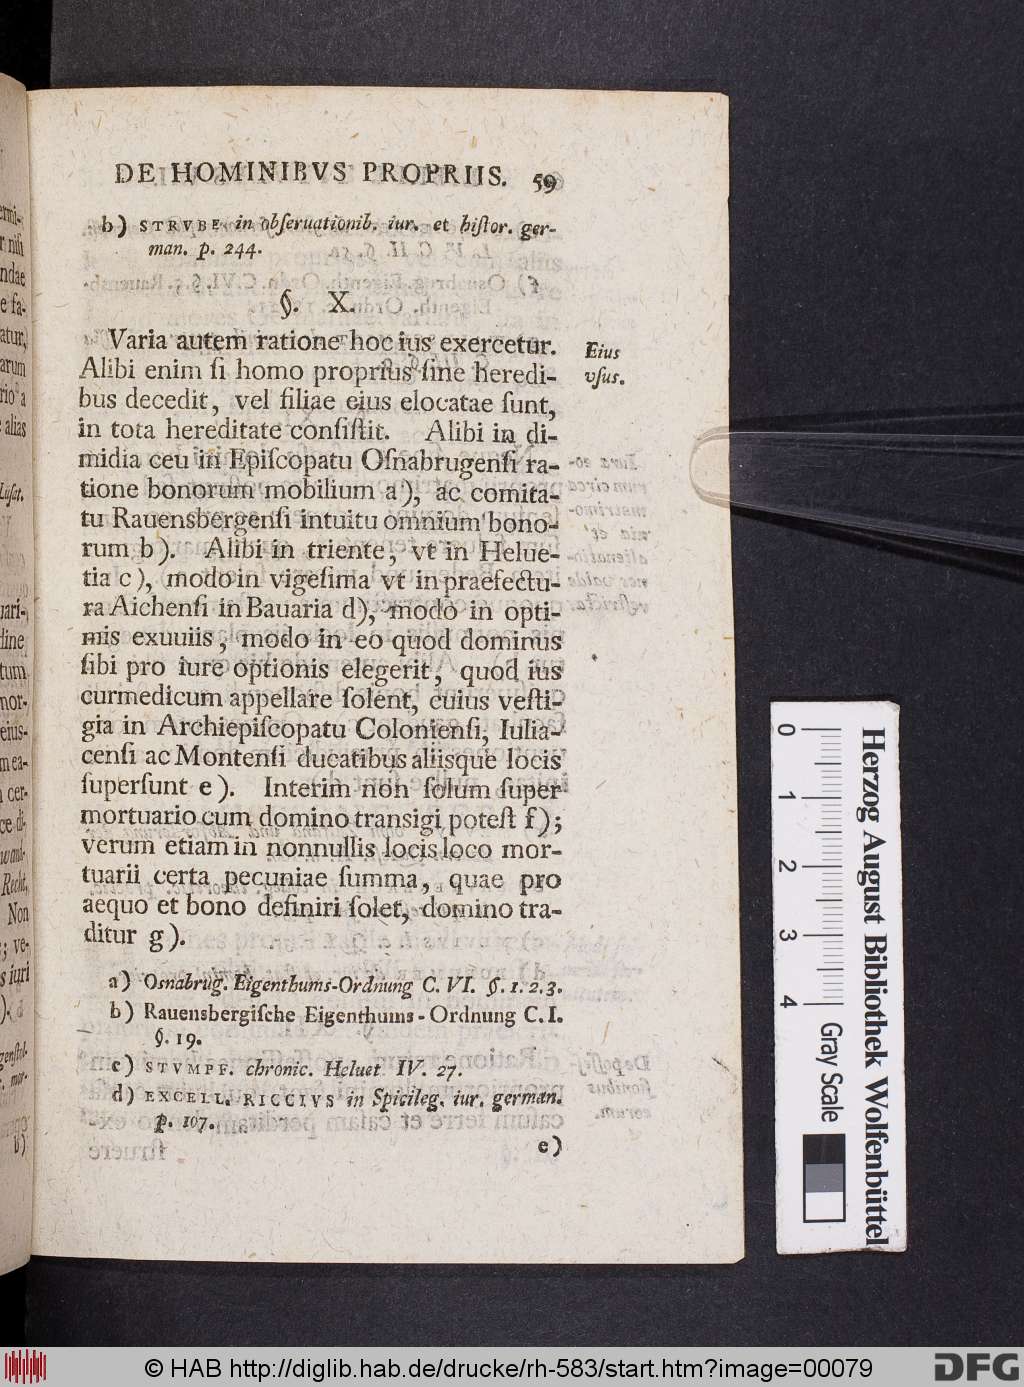 DE HOMINIBVS PROPRIIS. 59
b) STRVBE in obſeruationib. iur. et hiſtor. ger-
man. p. 244.
§. X.
Varia autem ratione hoc ius exercetur.
Alibi enim ſi homo proprius ſine heredi-
bus decedit, vel filiae eius elocatae ſunt,
in tota hereditate conſiſtit. Alibi in di-
midia ceu in Epiſcopatu Oſnabrugenſi ra-
tione bonorum mobilium a), ac comita-
tu Rauensbergenſi intuitu omnium bono-
rum b). Alibi in triente, vt in Helue-
tia c), modo in vigeſima vt in praefectu-
ra Aichenſi in Bauaria d), modo in opti-
mis exuuiis, modo in eo quod dominus
ſibi pro iure optionis elegerit, quod ius
curmedicum appellare ſolent, cuius veſti-
gia in Archiepiſcopatu Colonienſi, Iulia-
cenſi ac Montenſi ducatibus aliisque locis
ſuperſunt e). Interim non ſolum ſuper
mortuario cum domino transigi poteſt f);
verum etiam in nonnullis locis loco mor-
tuarii certa pecuniae ſumma, quae pro
aequo et bono definiri ſolet, domino tra-
ditur g).
Eius
vſus.
a) Osnabrüg. Eigenthums-Ordnung C. VI. §. 1. 2. 3.
b) Rauensbergiſche Eigenthums-Ordnung C. I.
§. 19.
c) STVMPF. chronic. Heluet IV. 27.
d) EXCELL. RICCIVS in Spicileg. iur. german.
p. 107.
e)
0 1 2 3 4
Herzog August Bibliothek Wolfenbüttel
Gray Scale
© HAB http://diglib.hab.de/drucke/rh-583/start.htm?image=00079
DFG